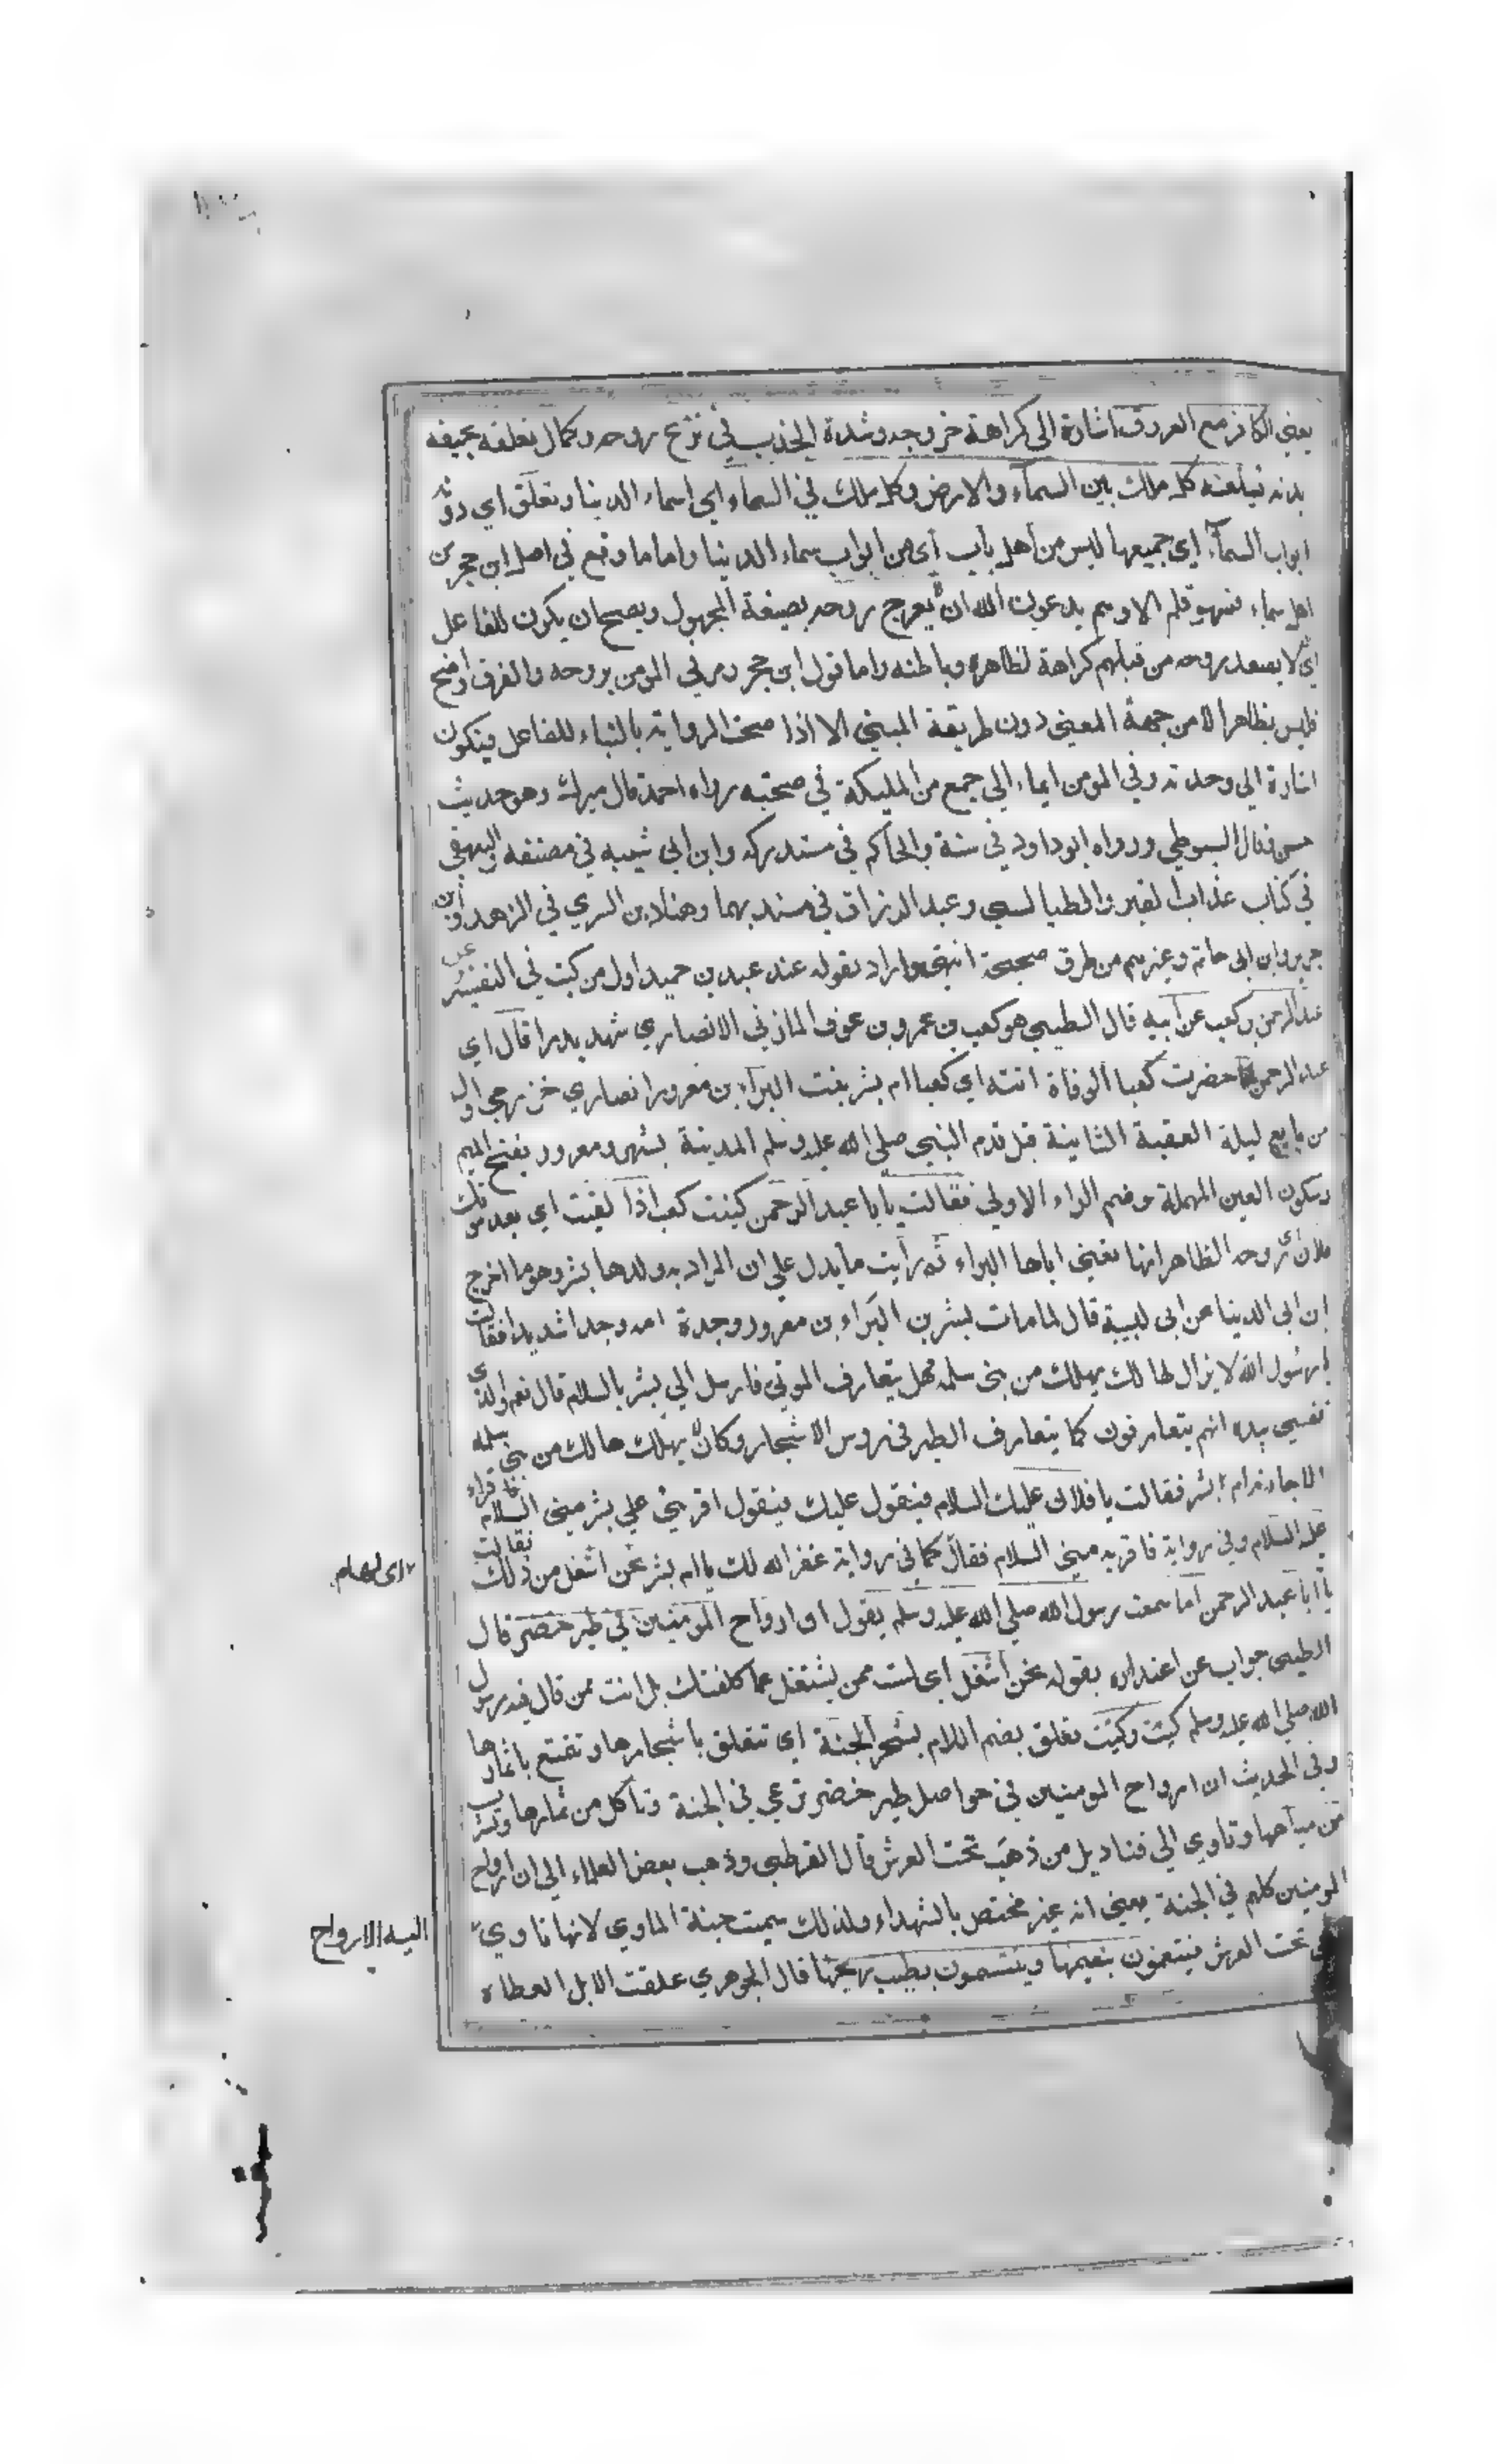 يعني الكافر مع العروق اشارة الى كراهة خروجه وشدة الجذب في نزع روحه وكمال تعلقه بجيفه
بدنه فيلعنه كل ملك بين السماء والارض وكل ملك في السماء اي اسماء الدنيا وتغلق اي دونه
ابواب السماء اي جميعها ليس من اهل باب أي من ابواب سماء الدنيا واما ما وقع في اصل ابن حجر من
اهل سماء فسهو قلم الا وهم يدعون الله ان لا يعرج روحه بصيغة المجهول ويصح ان يكون للفاعل
اي لا يصعد روحه من قبلهم كراهة لظاهره وباطنه واما قول ابن حجر ومر في المومن بروحه والفرق اوضح
فليس بظاهر الا من جهة المعنى دون طريقة المبني الا اذا صحت الرواية بالتاء للفاعل فيكون
اشارة الى وحدته وفي المومن ايماء الى جمع من المليكة في صحبته رواه احمد قال ميرك وهو حديث
حسن وقال السيوطي ورواه ابو داود في سننه والحاكم في مستدركه وابن ابي شيبه في مصنفه والبيهقي
في كتاب عذاب القبر والطيالسي وعبد الرزاق في مسنديهما وهناد بن السري في الزهد وابن
جرير وابن ابي حاتم وغيرهم من طرق صحيحة انتهى واراد بقوله عند عبد بن حميد اول من كتب في التفسير عن
عبد الرحمن بن كعب عن أبيه قال الطيبي هو كعب بن عمرو بن عوف المازني الانصاري شهد بدرا قال اي
عبد الرحمن لما حضرت كعبا الوفاة اتته اي كعبا ام بشر بنت البراء بن معرور انصاري خزرجي اول
من بايع ليلة العقبة الثانية قبل قدم النبي صلي الله عليه وسلم المدينة بشهر ومعرور بفتح الميم
وسكون العين المهملة وضم الراء الاولي فقالت يا ابا عبد الرحمن كنيت كعب اذا لقيت اي بعد موتك
فلانا اي روحه الظاهر انها تعني اباها البراء ثم رأيت ما يدل علي ان المراد به ولدها بشر وهو ما اخرج
ابن أبي الدنيا عن ابي لبيبة قال لما مات بشر بن البراء بن معرور وجدة امه وجدا شديدا فقالت
يا رسول الله لا يزال لهالك يهلك من بني سلمه فهل يتعارف الموتى فارسل الي بشر بالسلام قال نعم والذي
نفسي بيده انهم يتعارفون كما يتعارف الطير في روس الاشجار وكان لا يهلك هالك من بني سلمه
الا جاءته ام بشر فقالت يا فلان عليك السلام فيقول عليك فيقول اقرئي علي بشر مني السلام فاقراء
عليه السلام وفي رواية فاقريه مني السلام فقال كما في رواية غفر الله لك يا ام بشر نحن اشغل من ذلك فقالت
يا أبا عبد الرحمن اما سمعت رسول الله صلي الله عليه وسلم يقول ان ارواح المومنين في طير خضر قال
الطيبي جواب عن اعتذاره بقوله نحن اشغل اي لست ممن يشتغل عما كلفتك بل انت ممن قال فيه رسول
الله صلي الله عليه وسلم كيت وكيت تعلق بضم اللام بشجر الجنة اي تتعلق باشجارها وتتمتع باثمارها
وفي الحديث ان ارواح المومنين في حواصل طير خضر ترعي في الجنة وتاكل من ثمارها وتشرب
من مياهها وتاوي الي قناديل من ذهب تحت العرش قال القرطبي وذهب بعض العلماء الي ان ارواح
المومنين كلهم في الجنة يعني انه غير مختص بالشهداء ولذلك سميت جنة الماوي لانها تاوي
تحت العرش فيتنعمون بنعيمها ويتنسمون بطيب ريحها قال الجوهري علقت الابل العطاه
اليه الارواح